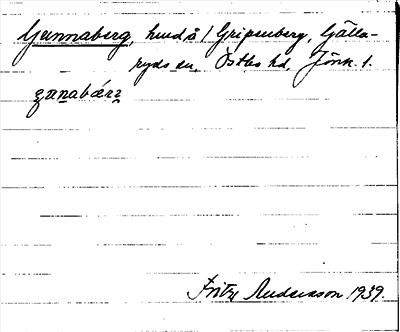 Gunnaberg, hmd å / Gripenberg, Gälla-
ryds sn, Östbo hd, Jönk. l.
Fritz Andersson 1939.